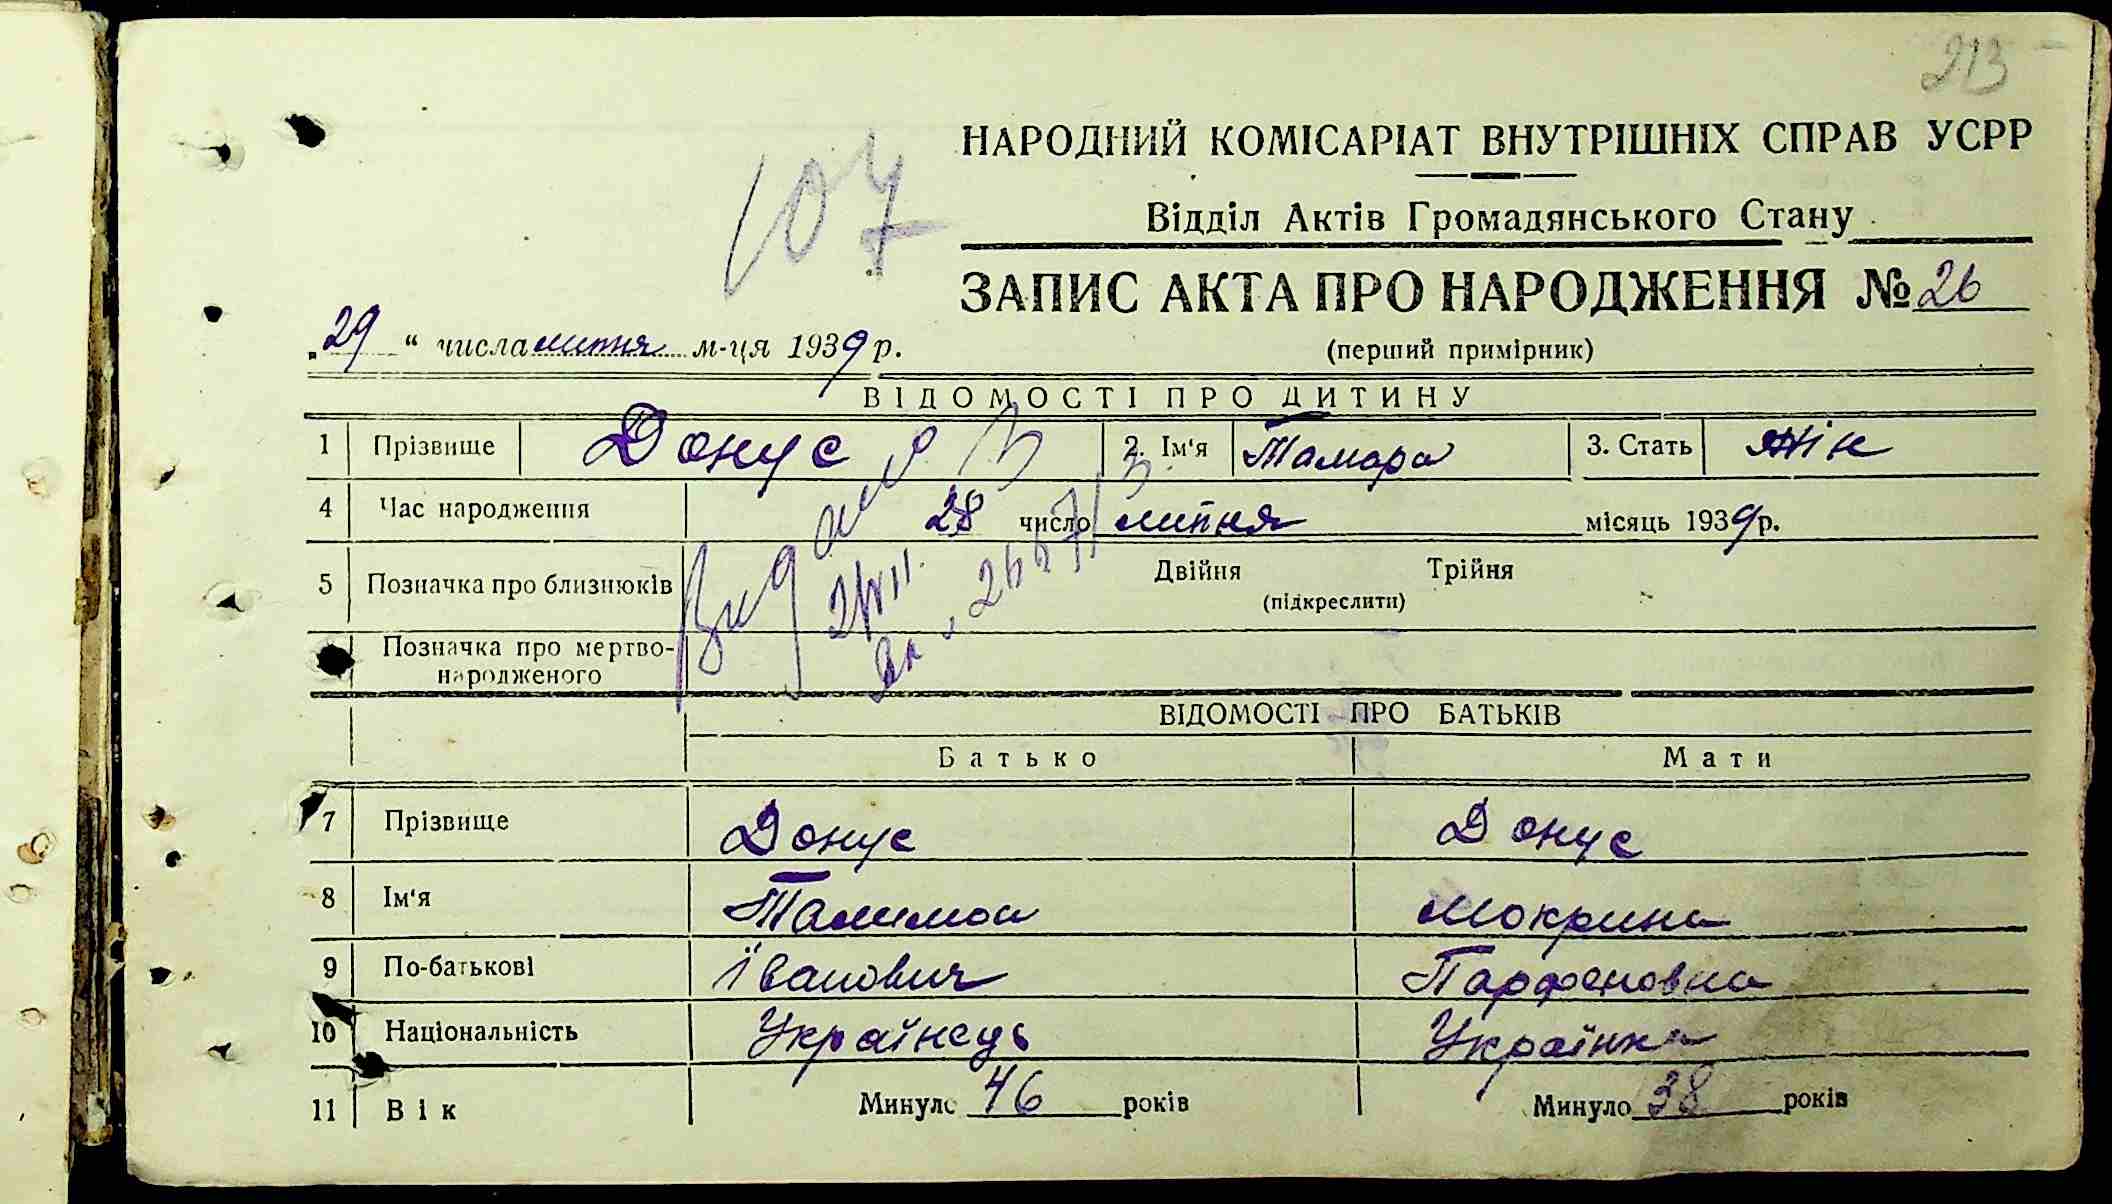 213
107
НАРОДНИЙ КОМІСАРІАТ ВНУТРІШНІХ СПРАВ УСРР
Відділ Актів Громадянського Стану
ЗАПИС АКТА ПРО НАРОДЖЕННЯ № 26
„29“ числа липня м-ця 1939 р.
(перший примірник)
ВІДОМОСТІ ПРО ДИТИНУ
1 Прізвище Донус 2. Ім'я Тамара 3. Стать жін
4 Час народження 28 число липня місяць 1939 р.
5 Позначка про близнюків Двійня Трійня
(підкреслити)
Позначка про мертво-
народженого
ВІДОМОСТІ ПРО БАТЬКІВ
Батько Мати
7 Прізвище Донус Донус
8 Ім'я Мокрина
9 По-батькові Іванович Парфеновна
10 Національність Українець Українка
11 Вік Минуло 46 років Минуло 38 років